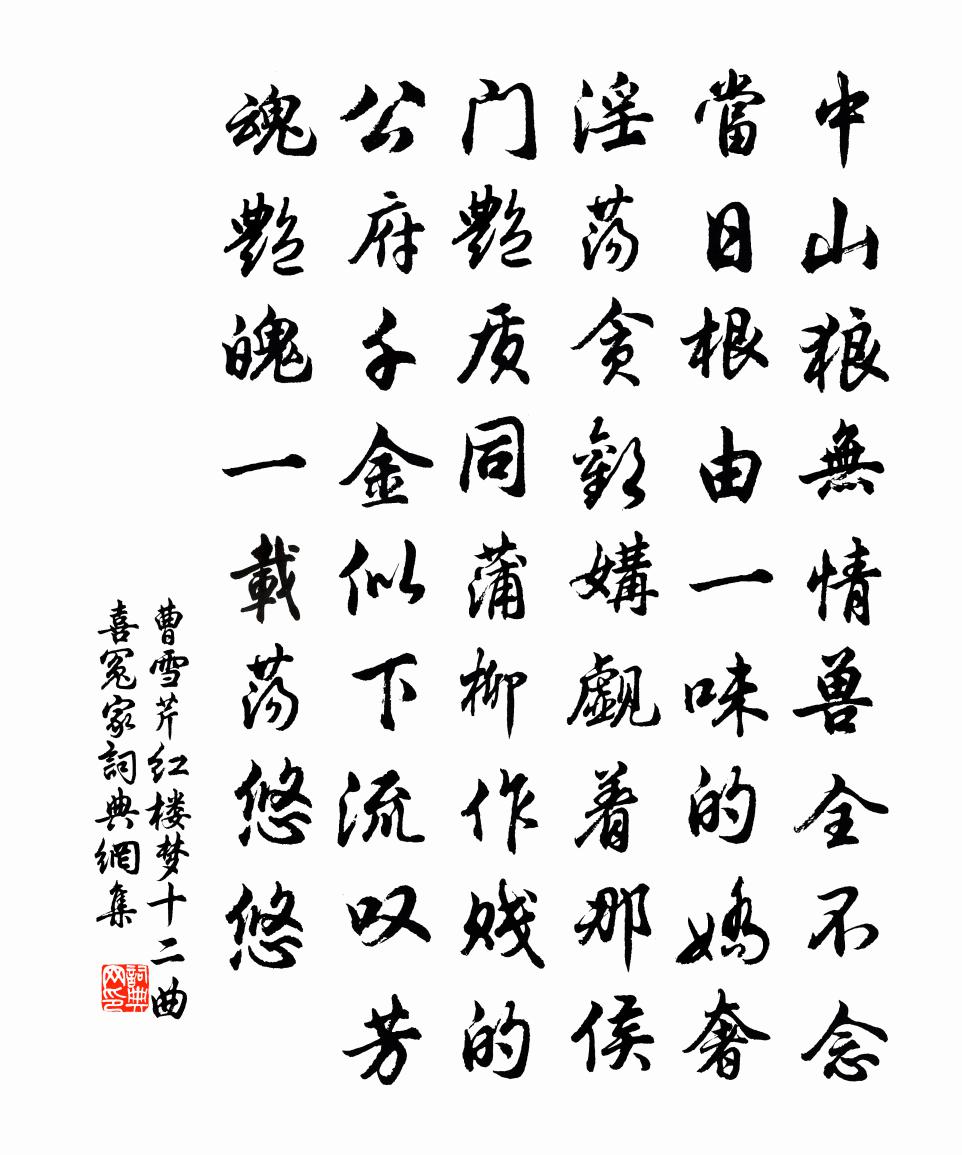 中山狼無情兽全不念
當日根由一味的嬌奢
淫荡贪歡媾覷着那侯
门艷质同蒲柳作贱的
公府千金似下流叹芳
魂艷魄一載荡悠悠
曹雪芹红楼梦十二曲
喜冤家詞典網集
詞典
网印